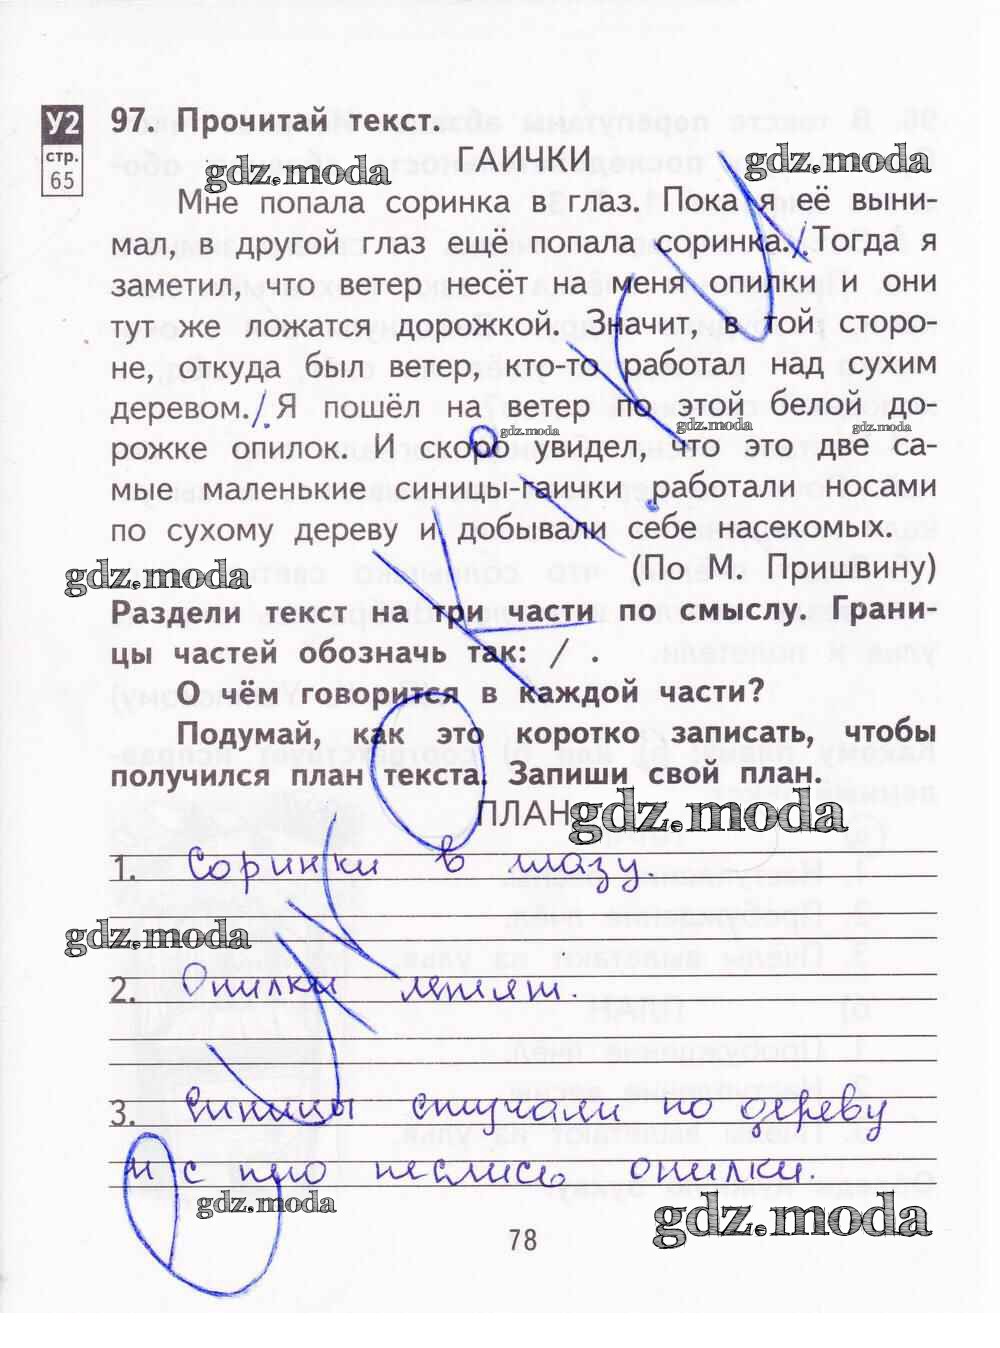 У2
стр.
65
97. Прочитай текст.
ГАИЧКИ
gdz.moda
gdz.moda
Мне попала соринка в глаз. Пока я её выни-
мал, в другой глаз ещё попала соринка./ Тогда я
заметил, что ветер несёт на меня опилки и они
тут же ложатся дорожкой. Значит, в той сторо-
не, откуда был ветер, кто-то работал над сухим
деревом./ Я пошёл на ветер по этой белой до-
gdz.moda gdz.moda gdz.moda
рожке опилок. И скоро увидел, что это две са-
мые маленькие синицы-гаички работали носами
по сухому дереву и добывали себе насекомых.
gdz.moda
(По М. Пришвину)
Раздели текст на три части по смыслу. Грани-
цы частей обозначь так: / .
О чём говорится в каждой части?
Подумай, как это коротко записать, чтобы
получился план текста. Запиши свой план.
ПЛАН
gdz.moda
1. Соринки в глазу.
gdz.moda
2. Опилки летят.
3. Синицы стучали по дереву
и с него неслись опилки.
gdz.moda
gdz.moda
78